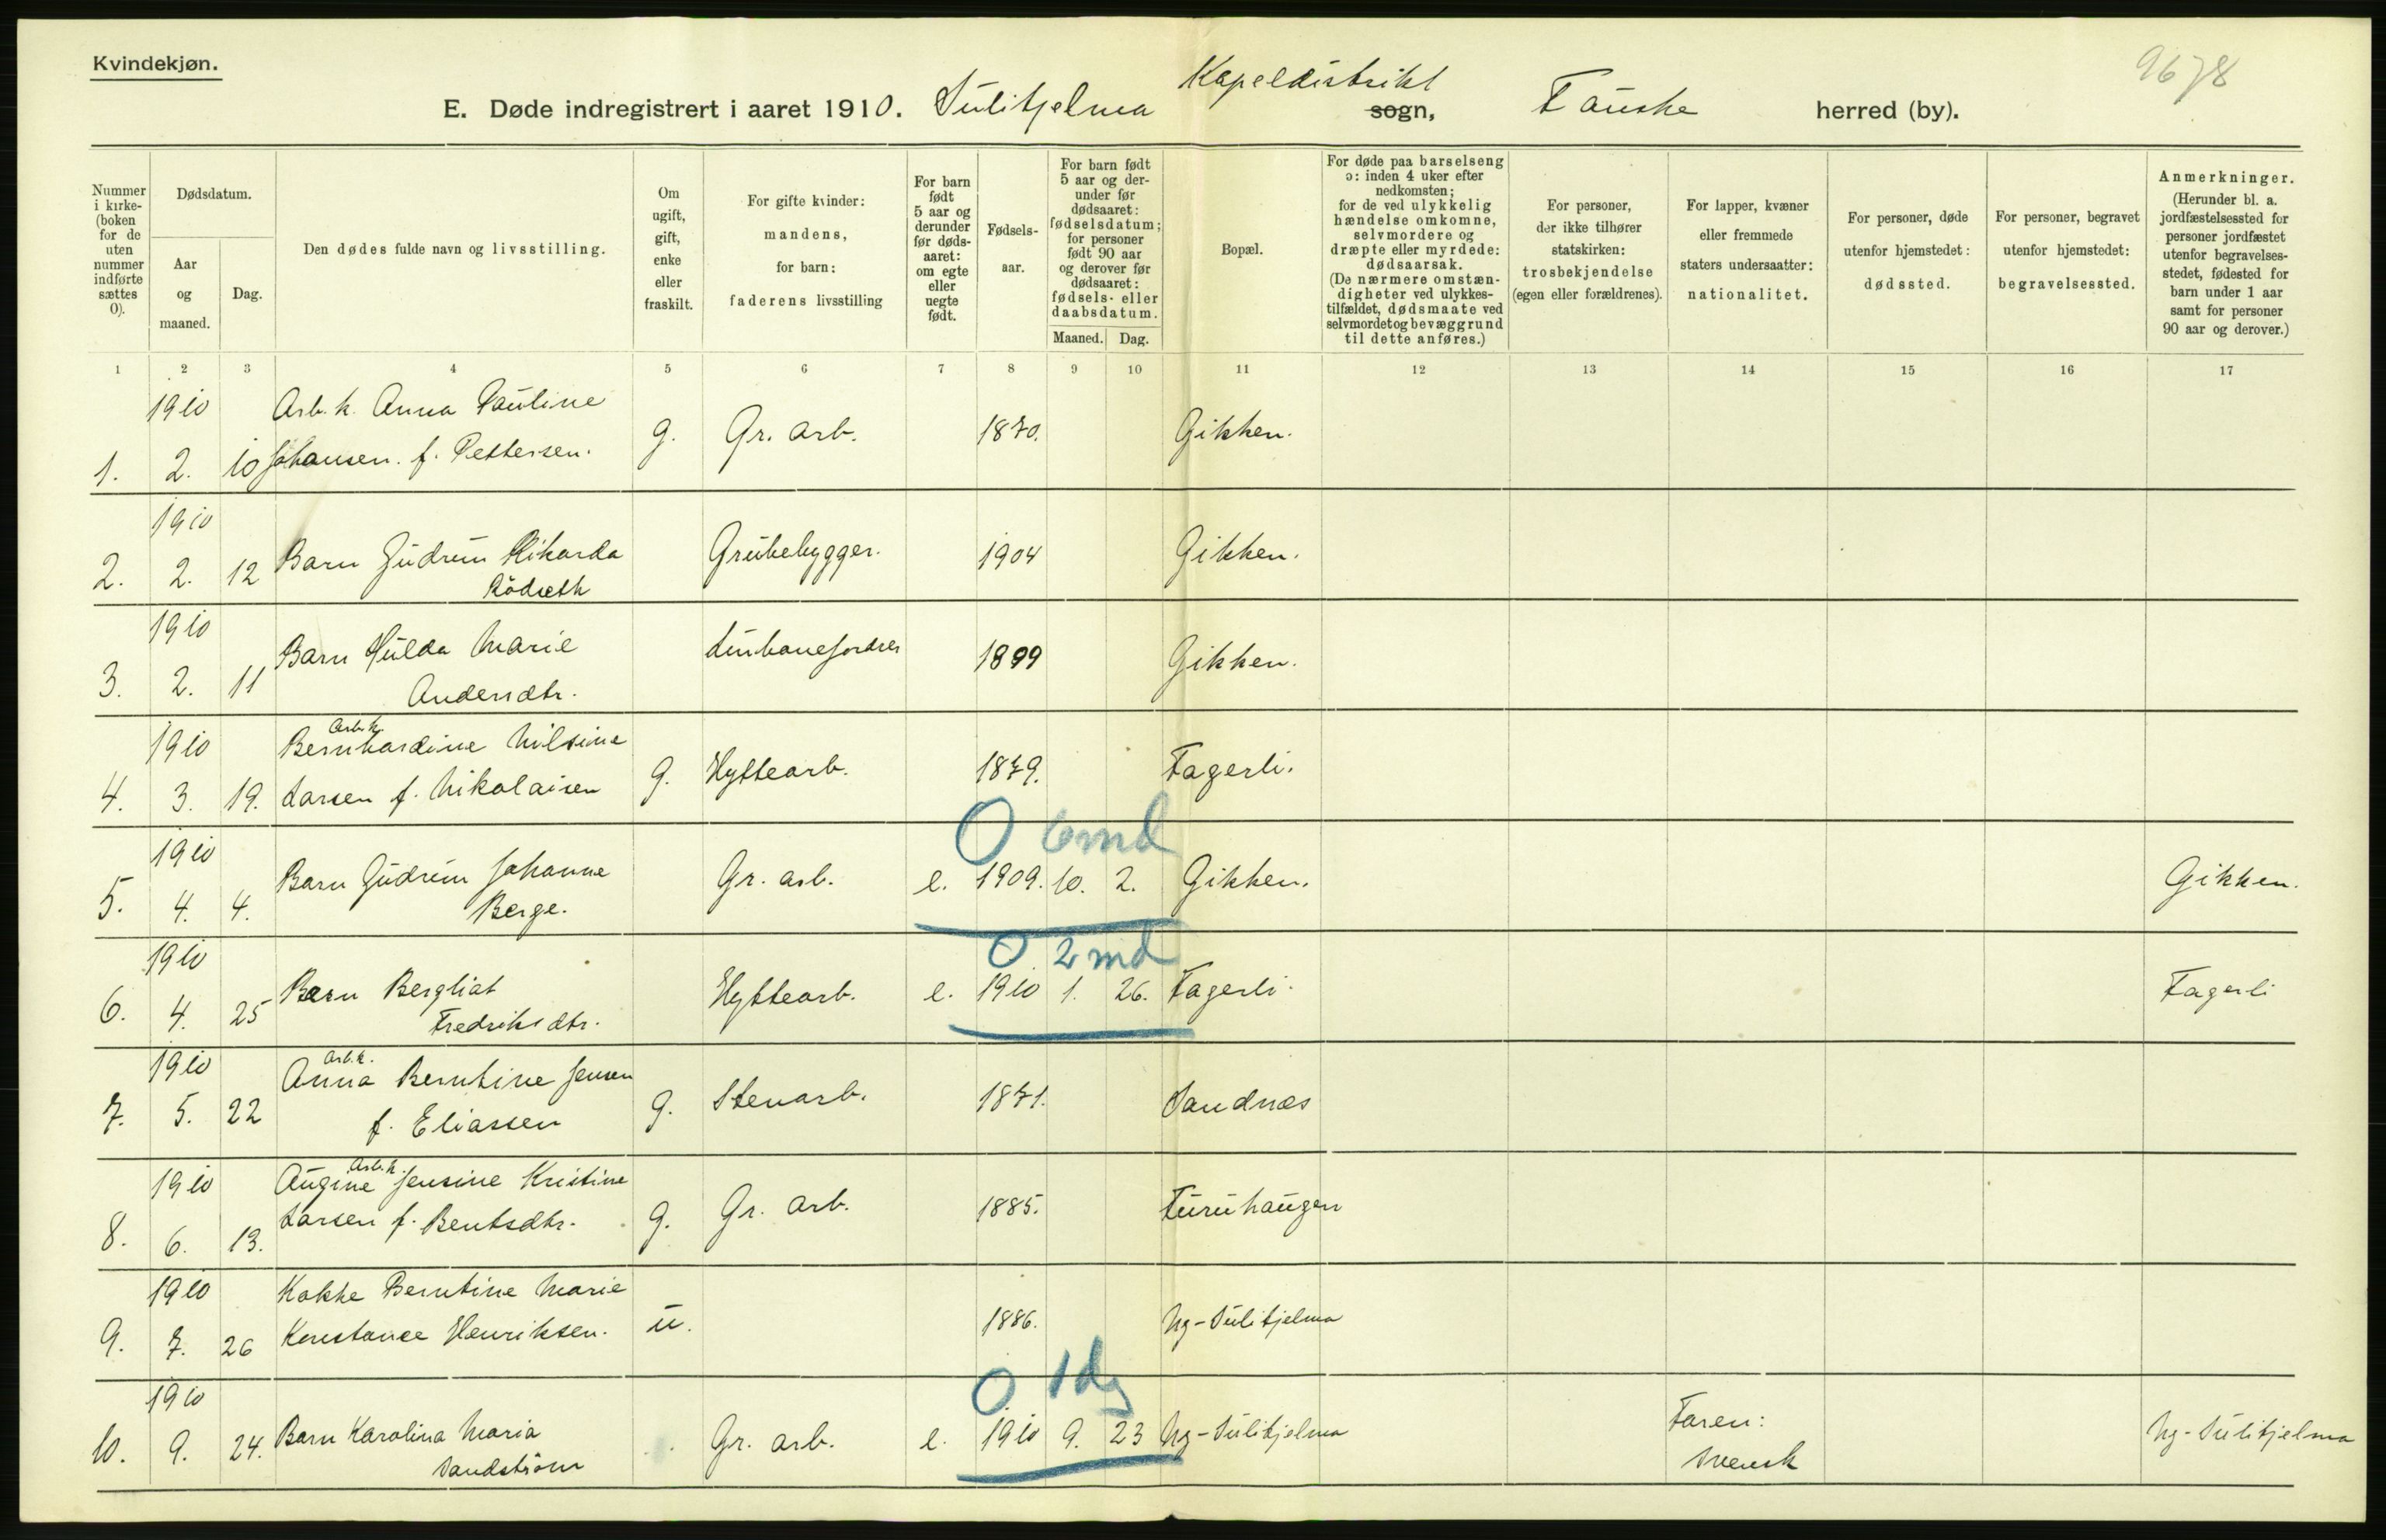 Kvindekjøn.
9678
E. Døde indregistrert i aaret 1910. Sulitjelma Kapeldistrikt sogn, Fauske herred (by).
Nummer i kirkeboken (for de uten nummer indførte sættes 0).
Dødsdatum.
Aar og maaned.
Dag.
Den dødes fulde navn og livsstilling.
Om ugift, gift, enke eller fraskilt.
For gifte kvinder: mandens, for barn: faderens livsstilling
For barn født 5 aar og derunder før dødsaaret: om egte eller uegte født.
Fødselsaar.
For barn født 5 aar og derunder før dødsaaret: fødselsdatum; for personer født 90 aar og derover før dødsaaret: fødsels- eller daabsdatum.
Maaned. Dag.
Bopæl.
For døde paa barselseng ɔ: inden 4 uker efter nedkomsten; for de ved ulykkelig hændelse omkomne, selvmordere og dræpte eller myrdede: dødsaarsak. (De nærmere omstændigheter ved ulykkestilfældet, dødsmaate ved selvmordet og bevæggrund til dette anføres.)
For personer, der ikke tilhører statskirken: trosbekjendelse (egen eller forældrenes).
For lapper, kvæner eller fremmede staters undersaatter: nationalitet.
For personer, døde utenfor hjemstedet: dødssted.
For personer, begravet utenfor hjemstedet: begravelsessted.
Anmerkninger. (Herunder bl. a. jordfæstelsessted for personer jordfæstet utenfor begravelsesstedet, fødested for barn under 1 aar samt for personer 90 aar og derover.)
1 2 3 4 5 6 7 8 9 10 11 12 13 14 15 16 17
1910 Arb. k. Anna Pauline
1. 2. 10 Johansen. f. Pettersen. g. Gr. arb. 1870. Gikken.
1910
2. 2. 12 Barn Gudrun Rikarda Grubebygger. 1904 Gikken.
Rödseth
1910
3. 2. 11 Barn Hulda Marie 1899 Gikken.
Andersdtr.
Arb. k.
1910 Bernhardine Nilsine
4. 3. 19. Larsen f. Nikolaisen g. Hyttearb. 1879. Fagerli.
0 6 md
1910
5. 4. 4. Barn Gudrun Johanne Gr. arb. e. 1909. 10. 2. Gikken. Gikken.
Berge.
0 2 md
1910
6. 4. 25 Barn Bergliot Hyttearb. e. 1910 1. 26. Fagerli. Fagerli
Fredriksdtr.
Arb. k.
1910 Anna Berntine Jensen
7. 5. 22 f. Eliassen g. Stenarb. 1871. Sandnæs
Arb. k.
1910 Augine Jensine Kristine
8. 6. 13. Larsen f. Bentsdtr. g. Gr. arb. 1885. Furuhaugen
1910 Kokke Berntine Marie
9. 7. 26 Konstance Henriksen. u. 1886. Ny-Sulitjelma
0 1 dg
1910
10. 9. 24. Barn Karolina Maria Gr. arb. e. 1910 9. 23 Ny-Sulitjelma Faren: Ny-Sulitjelma
Sandström svensk